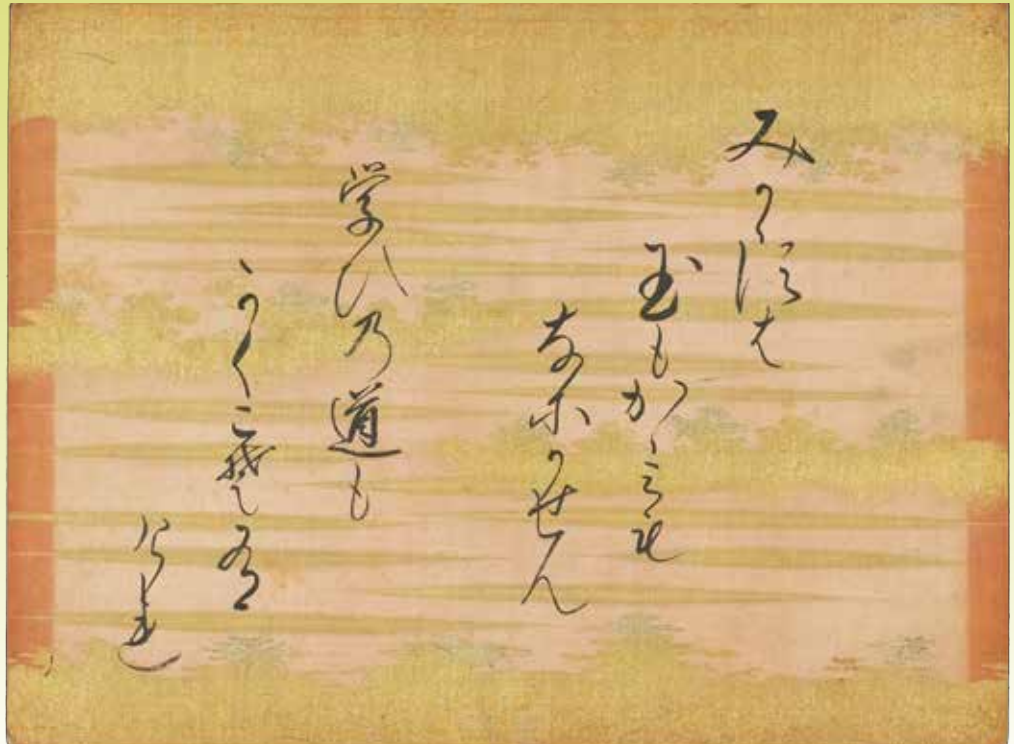 みかすは
玉もかゝみも
なにかせん
学ひ乃道も
かくこそ有
けれ